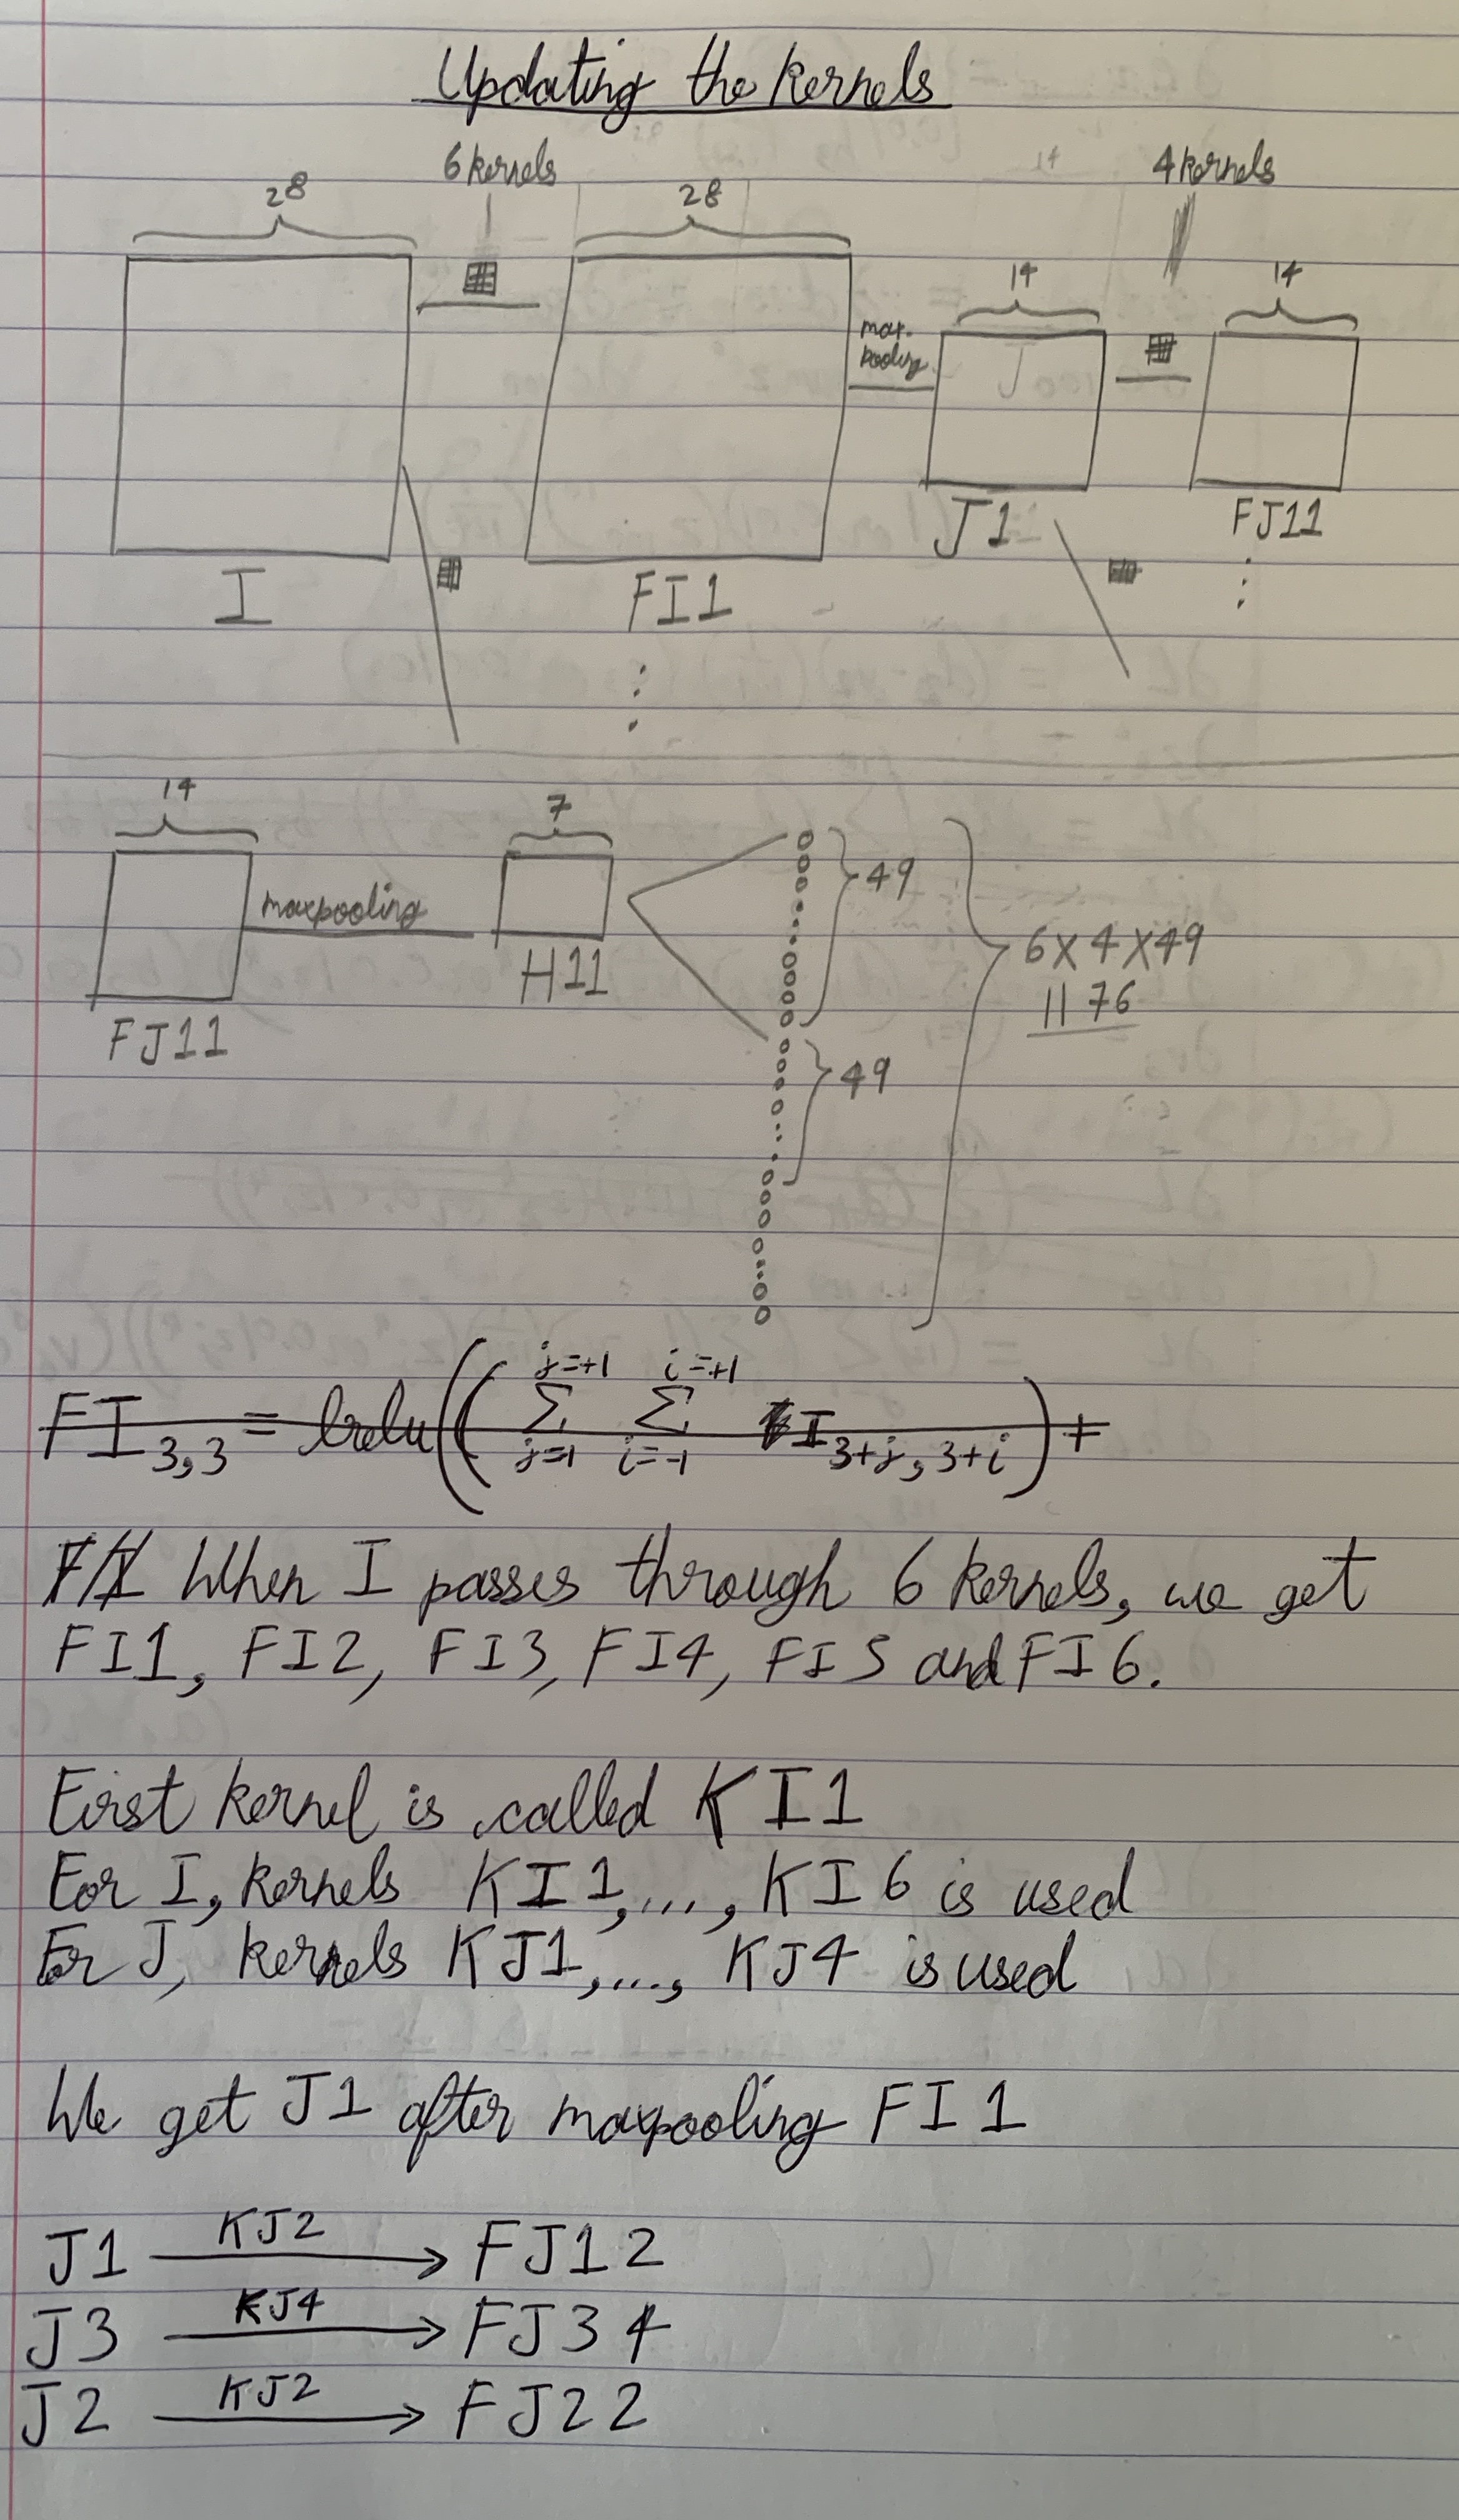 Updating the kernels
6 kernels
4 kernels
28
28
14
14
max-
pooling
I
FI1
J1
FJ11
14
7
maxpooling
49
6X4X49
1176
H11
FJ11
49
FI3,3 = lrelu((∑ j=-1 j=+1 ∑ i=-1 i=+1 I3+j,3+i)+
When I passes through 6 kernels, we get
FI1, FI2, FI3, FI4, FI5 and FI6.
First kernel is called KI1
For I, kernels KI1,..., KI6 is used
For J, kernels KJ1,..., KJ4 is used
We get J1 after maxpooling FI1
J1 KJ2 → FJ12
J3 KJ4 → FJ34
J2 KJ2 → FJ22